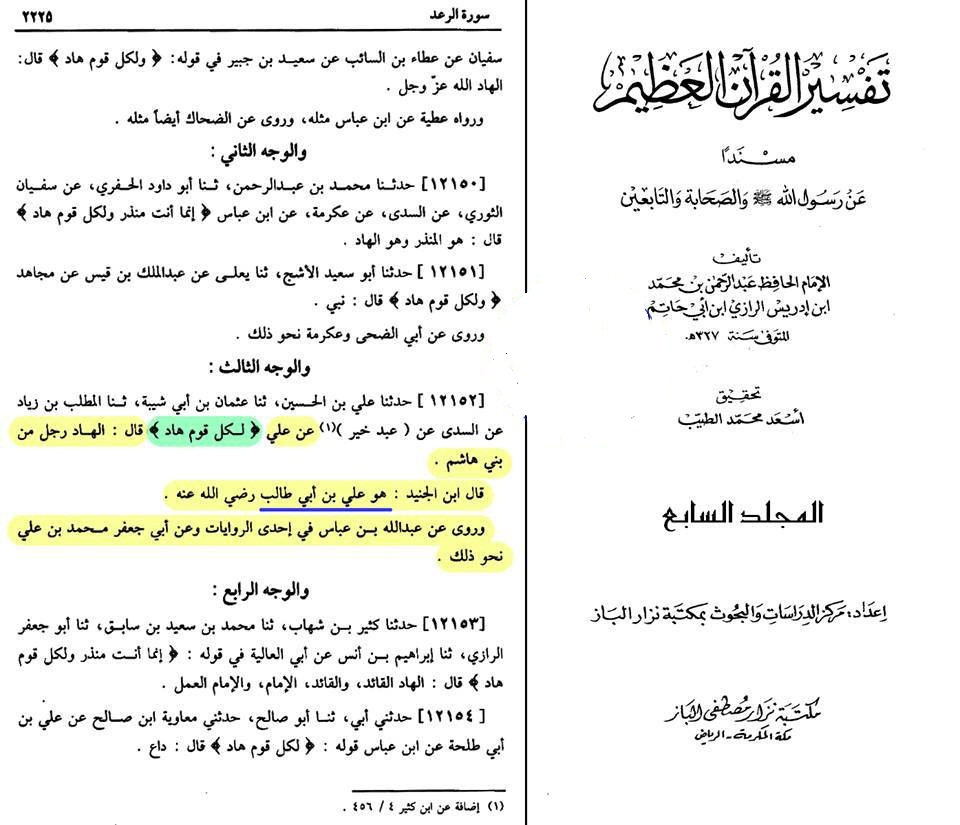 سورة الرعد ٢٢٢٥
سفيان عن عطاء بن السائب عن سعيد بن جبير في قوله: ﴿ ولكل قوم هاد ﴾ قال:
الهاد الله عزّ وجل .
ورواه عطية عن ابن عباس مثله، وروى عن الضحاك أيضاً مثله .
والوجه الثاني :
[١٢١٥٠] حدثنا محمد بن عبدالرحمن، ثنا أبو داود الحفري، عن سفيان
الثوري، عن السدى، عن عكرمة، عن ابن عباس ﴿ إنما أنت منذر ولكل قوم هاد ﴾
قال : هو المنذر وهو الهاد .
[١٢١٥١ ] حدثنا أبو سعيد الأشج، ثنا يعلى عن عبدالملك بن قيس عن مجاهد
﴿ ولكل قوم هاد ﴾ قال : نبي .
وروى عن أبي الضحى وعكرمة نحو ذلك .
والوجه الثالث :
[١٢١٥٢ ] حدثنا علي بن الحسين، ثنا عثمان بن أبي شيبة، ثنا المطلب بن زياد
عن السدى عن ( عبد خير )(١) عن علي ﴿ لكل قوم هاد ﴾ قال : الهاد رجل من
بني هاشم .
قال ابن الجنيد : هو علي بن أبي طالب رضي الله عنه .
وروى عن عبدالله بن عباس في إحدى الروايات وعن أبي جعفر محمد بن علي
نحو ذلك .
والوجه الرابع :
[١٢١٥٣] حدثنا كثير بن شهاب، ثنا محمد بن سعيد بن سابق، ثنا أبو جعفر
الرازي، ثنا إبراهيم بن أنس عن أبي العالية في قوله : ﴿ إنما أنت منذر ولكل قوم
هاد ﴾ قال : الهاد القائد، والقائد، الإمام، والإمام العمل .
[ ١٢١٥٤] حدثني أبي، ثنا أبو صالح، حدثني معاوية ابن صالح عن علي بن
أبي طلحة عن ابن عباس قوله : ﴿ لكل قوم هاد ﴾ قال : داع .
(١) إضافة عن ابن كثير ٤ / ٤٥٦ .
تفسير القرآن العظيم
مسندًا
عن رسول الله ﷺ والصحابة والتابعين
تأليف
الإمام الحافظ عبد الرحمن بن محمد
ابن إدريس الرازي ابن أبي حاتم
المتوفى سنة ٣٢٧هـ.
تحقيق
أسعد محمد الطيب
المجلد السابع
إعداد: مركز الدراسات والبحوث بمكتبة نزار الباز
مكتبة نزار مصطفى الباز
مكة المكرمة - الرياض